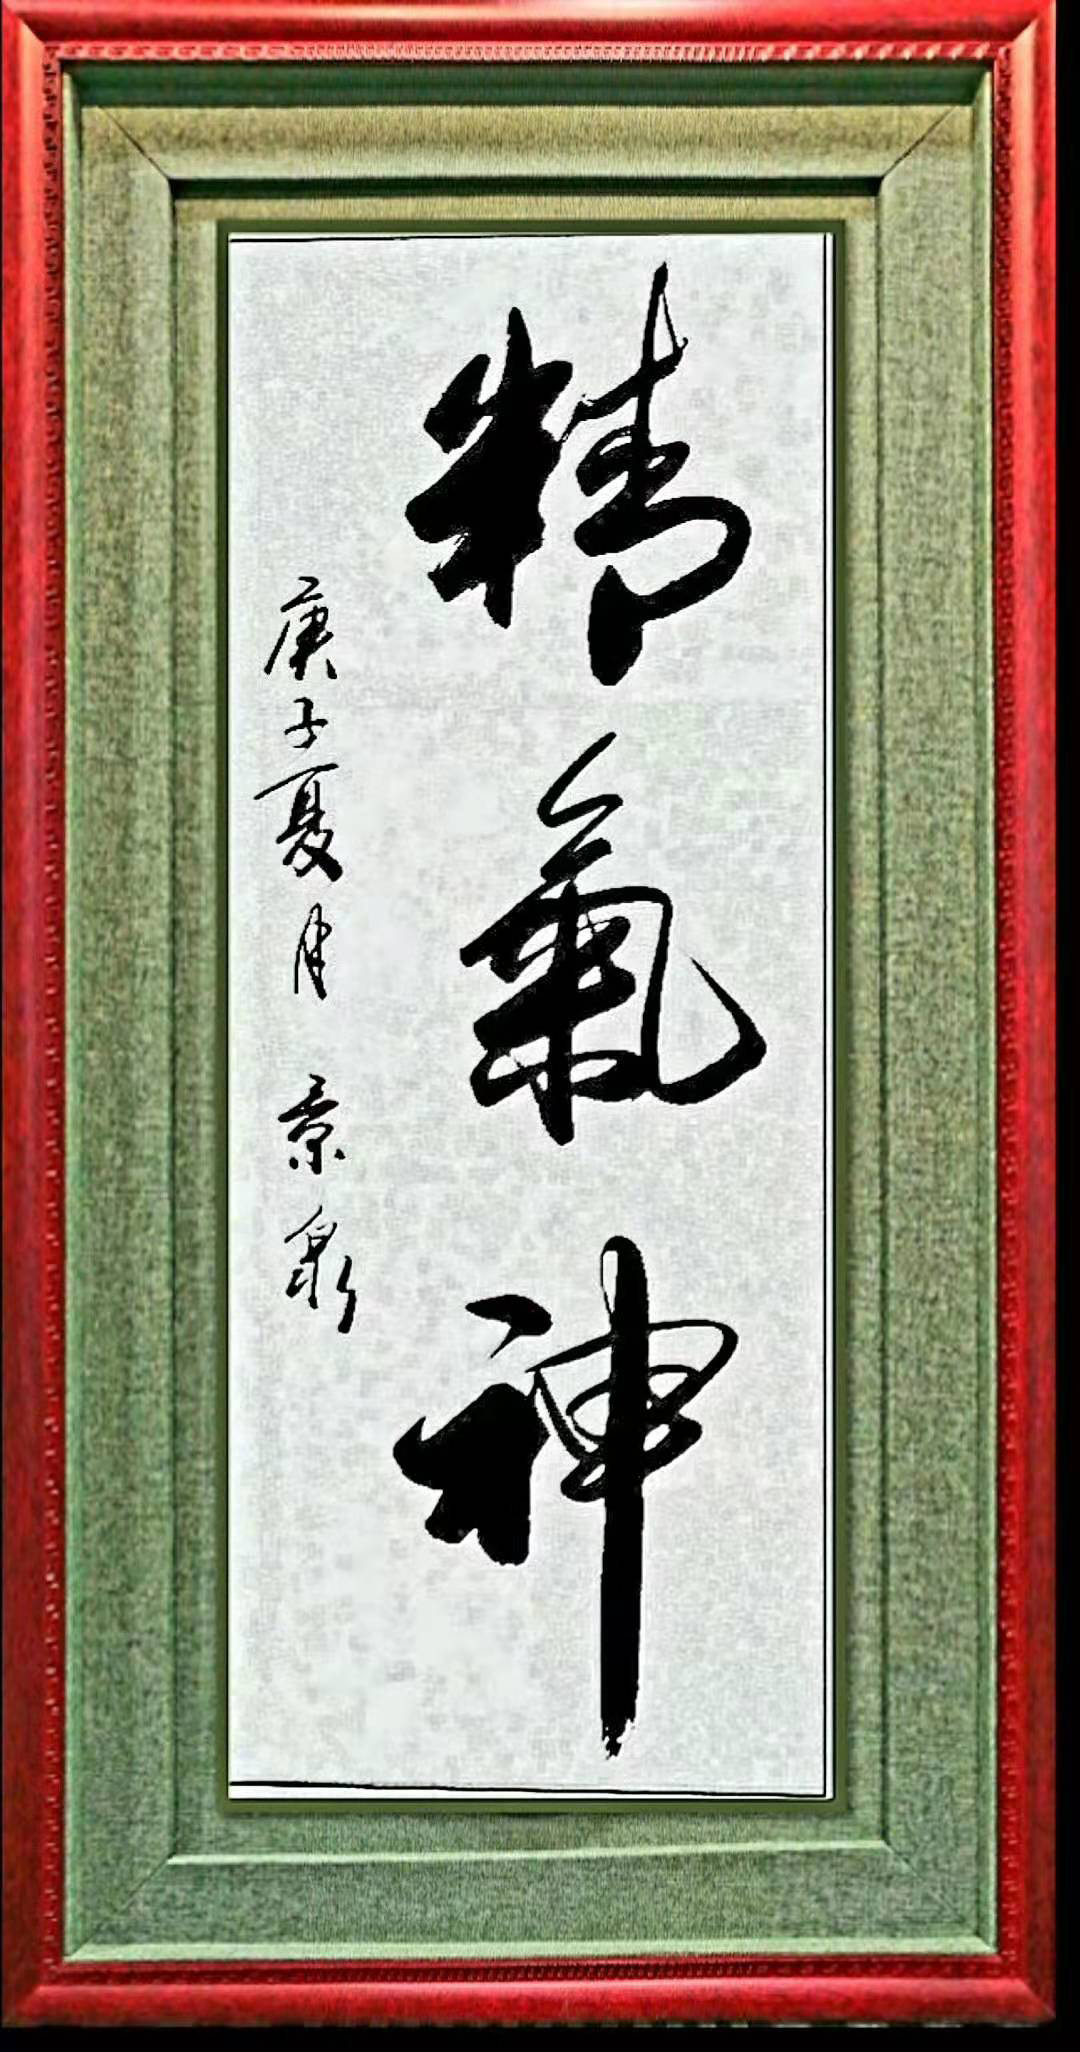 精氣神
庚子夏月 景泉